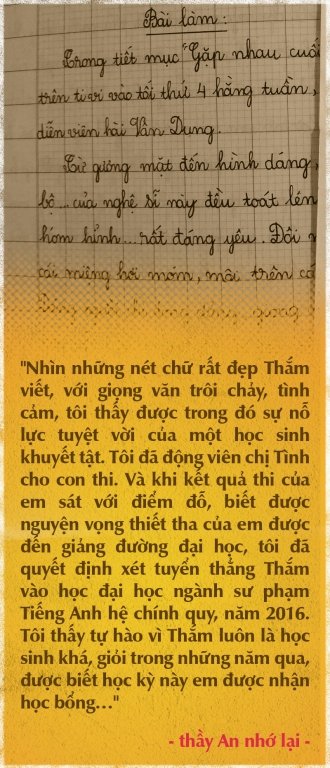 Bài làm:
Trong tiết mục "Gặp nhau cuối
trên ti vi vào tối thứ 4 hằng tuần,
diễn viên hài Vân Dung.
Từ gương mặt đến hình dáng,
bộ... của nghệ sĩ này đều toát lên
hóm hỉnh... rất đáng yêu. Đôi
cái miệng hơi móm, môi trên
"Nhìn những nét chữ rất đẹp Thắm
viết, với giọng văn trôi chảy, tình
cảm, tôi thấy được trong đó sự nỗ
lực tuyệt vời của một học sinh
khuyết tật. Tôi đã động viên chị Tình
cho con thi. Và khi kết quả thi của
em sát với điểm đỗ, biết được
nguyện vọng thiết tha của em được
đến giảng đường đại học, tôi đã
quyết định xét tuyển thẳng Thắm
vào học đại học ngành sư phạm
Tiếng Anh hệ chính quy, năm 2016.
Tôi thấy tự hào vì Thắm luôn là học
sinh khá, giỏi trong những năm qua,
được biết học kỳ này em được nhận
học bổng..."
- thầy An nhớ lại -